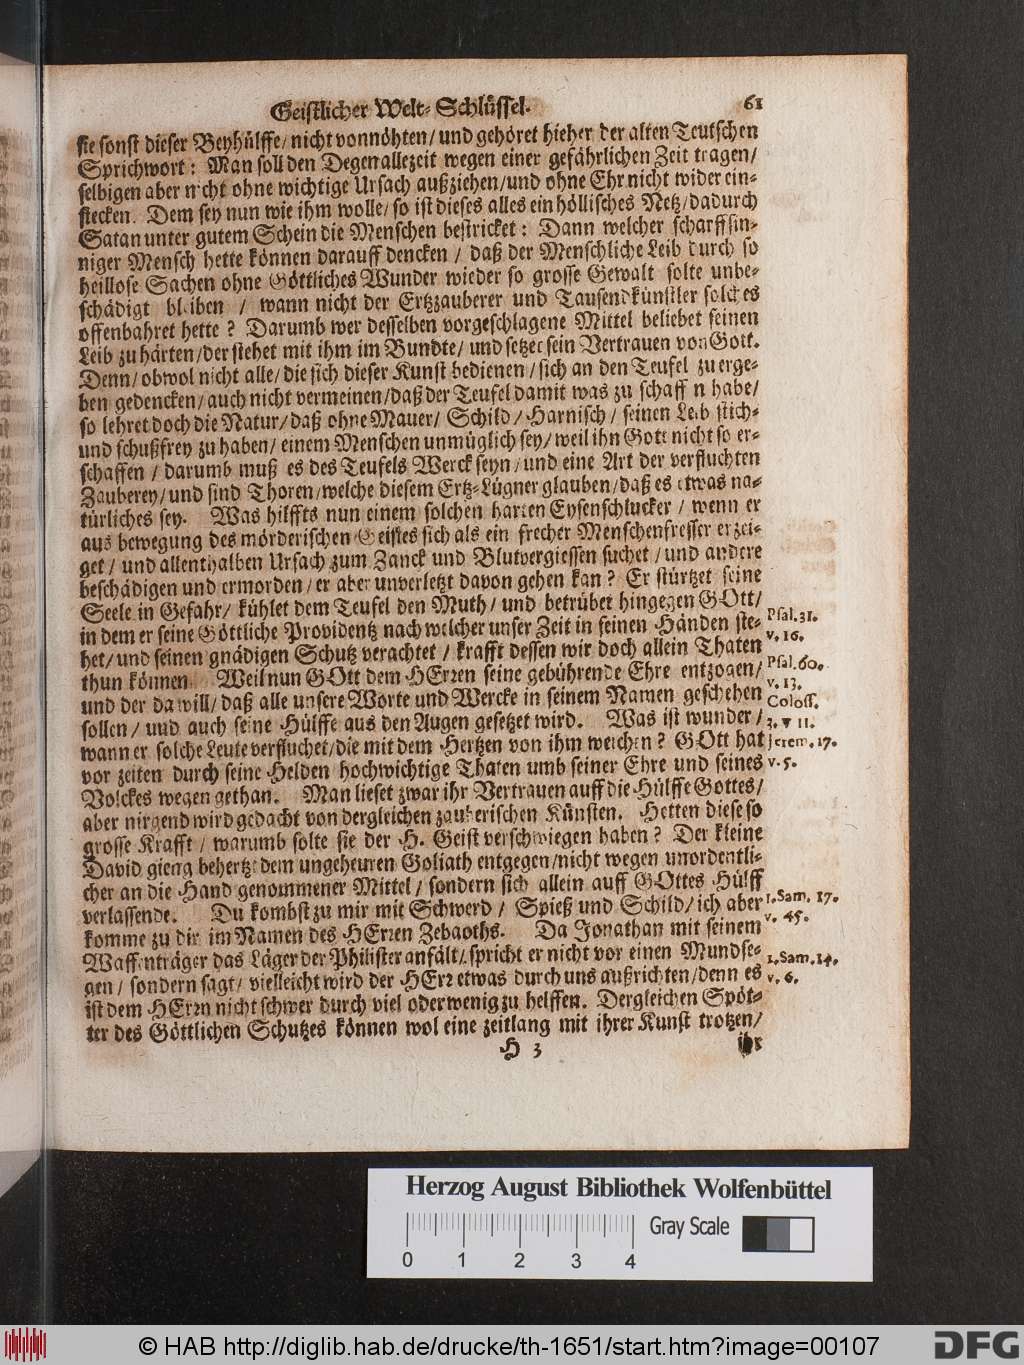 Geistlicher Welt-Schlüssel. 61
sie sonst dieser Beyhülffe/ nicht vonnöhten/ und gehöret hieher der alten Teutschen
Sprichwort: Man soll den Degen allezeit wegen einer gefährlichen Zeit tragen/
selbigen aber nicht ohne wichtige Ursach außziehen/ und ohne Ehr nicht wider ein-
stecken. Dem sey nun wie ihm wolle/ so ist dieses alles ein höllisches Netz/ dadurch
Satan unter gutem Schein die Menschen bestricket: Dann welcher scharffsin-
niger Mensch hette können darauff dencken/ daß der Menschliche Leib durch so
heillose Sachen ohne Göttliches Wunder wieder so grosse Gewalt solte unbe-
schädigt bleiben / wann nicht der Ertzzauberer und Tausendkünstler solches
offenbahret hette? Darumb wer desselben vorgeschlagene Mittel beliebet seinen
Leib zu härten/ der stehet mit ihm im Bundte/ und setzet sein Vertrauen von Gott.
Denn/ obwol nicht alle/ die sich dieser Kunst bedienen/ sich an den Teufel zu erge-
ben gedencken/ auch nicht vermeinen/ daß der Teufel damit was zu schaffen habe/
so lehret doch die Natur/ daß ohne Mauer/ Schild/ Harnisch/ seinen Leib stich-
und schußfrey zu haben/ einem Menschen unmüglich sey/ weil ihn Gott nicht so er-
schaffen/ darumb muß es des Teufels Werck seyn/ und eine Art der verfluchten
Zauberey/ und sind Thoren/ welche diesem Ertz-Lügner glauben/ daß es etwas na-
türliches sey. Was hilffts nun einem solchen harten Eysenschlucker/ wenn er
aus bewegung des mörderischen Geistes sich als ein frecher Menschenfresser erzei-
get/ und allenthalben Ursach zum Zanck und Blutvergiessen suchet/ und andere
beschädigen und ermorden/ er aber unverletzt davon gehen kan? Er stürtzet seine
Seele in Gefahr/ kühlet dem Teufel den Muth/ und betrübet hingegen GOtt/
in dem er seine Göttliche Providentz nach welcher unser Zeit in seinen Händen ste-
het/ und seinen gnädigen Schutz verachtet/ krafft dessen wir doch allein Thaten
thun können. Weil nun GOtt dem HErren seine gebührende Ehre entzogen/
und der da will/ daß alle unsere Worte und Wercke in seinem Namen geschehen
sollen/ und auch seine Hülffe aus den Augen gesetzet wird. Was ist wunder/
wann er solche Leute verfluchet/ die mit dem Hertzen von ihm weichen? GOtt hat
vor zeiten durch seine Helden hochwichtige Thaten umb seiner Ehre und seines
Volckes wegen gethan. Man lieset zwar ihr Vertrauen auff die Hülffe Gottes/
aber nirgend wird gedacht von dergleichen zauberischen Künsten. Hetten diese so
grosse Krafft/ warumb solte sie der H. Geist verschwiegen haben? Der kleine
David gieng behertzt dem ungeheuren Goliath entgegen/ nicht wegen unordentli-
cher an die Hand genommener Mittel/ sondern sich allein auff GOttes Hülff
verlassende. Du kombst zu mir mit Schwerd/ Spieß und Schild/ ich aber
komme zu dir im Namen des HErren Zebaoths. Da Jonathan mit seinem
Waffenträger das Läger der Philister anfält/ spricht er nicht vor einen Mundse-
gen/ sondern sagt/ vielleicht wird der HErr etwas durch uns außrichten/ denn es
ist dem HErrn nicht schwer durch viel oder wenig zu helffen. Dergleichen Spöt-
ter des Göttlichen Schutzes können wol eine zeitlang mit ihrer Kunst trotzen/
H 3 ihr
Psal. 31.
v. 16.
Psal. 60.
v. 13.
Coloss.
3. v 11.
Jerem. 17.
v. 5.
1. Sam. 17.
v. 45.
1. Sam. 14.
v. 6.
Herzog August Bibliothek Wolfenbüttel
Gray Scale
0 1 2 3 4
© HAB http://diglib.hab.de/drucke/th-1651/start.htm?image=00107
DFG